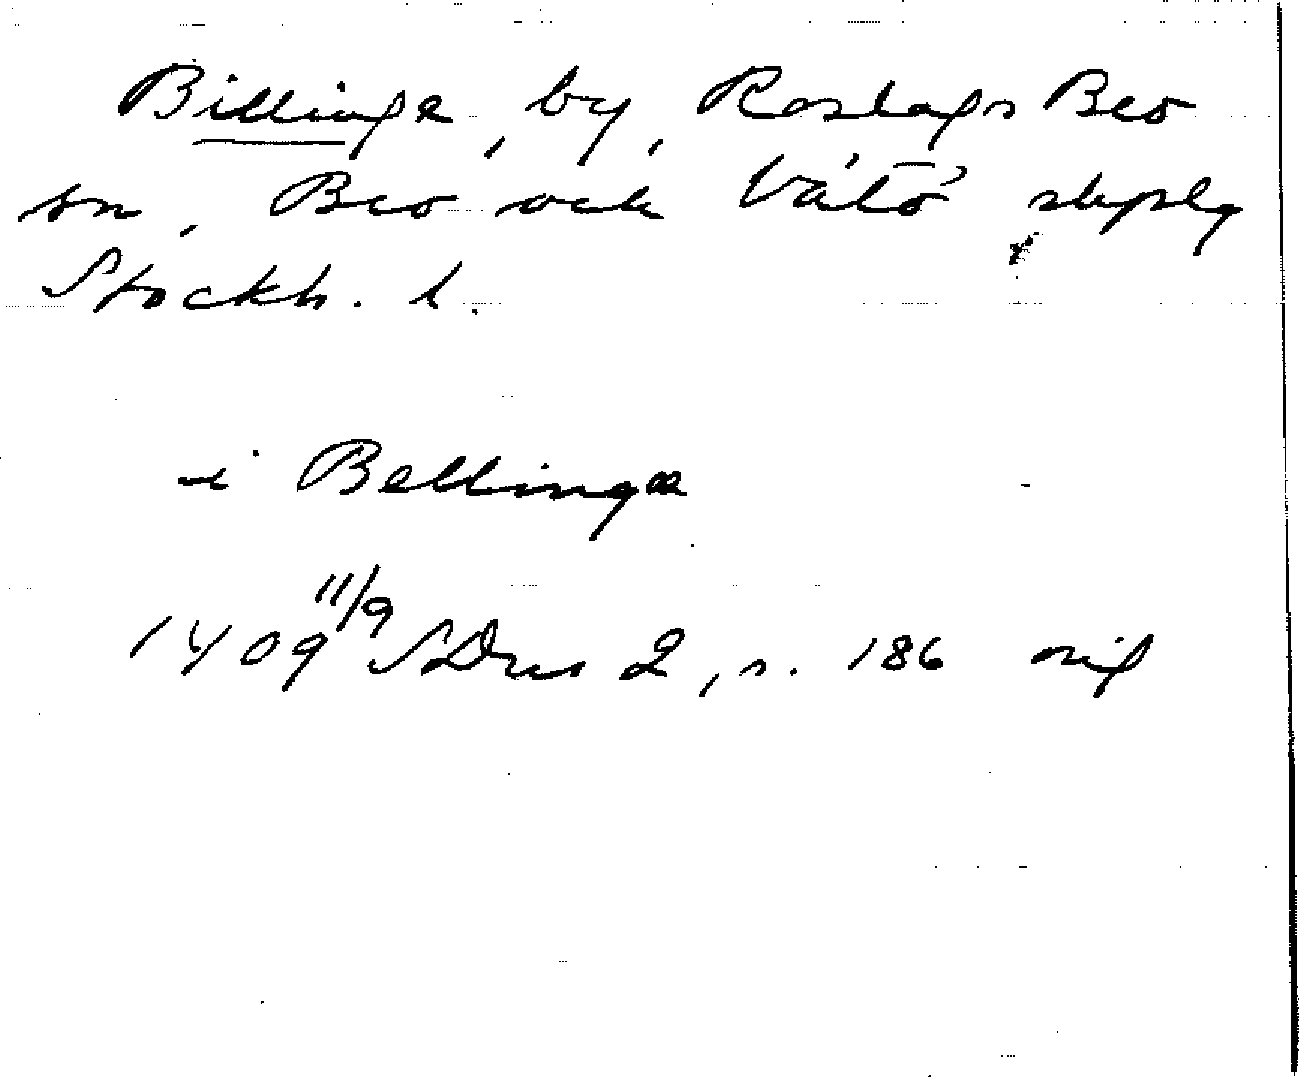 Billinge, by, Roslags Bro
sn, Bro och Vätö skplg
Stockh. l.
i Bellingæ
1409 11/9 SDns 2, s. 186 orig